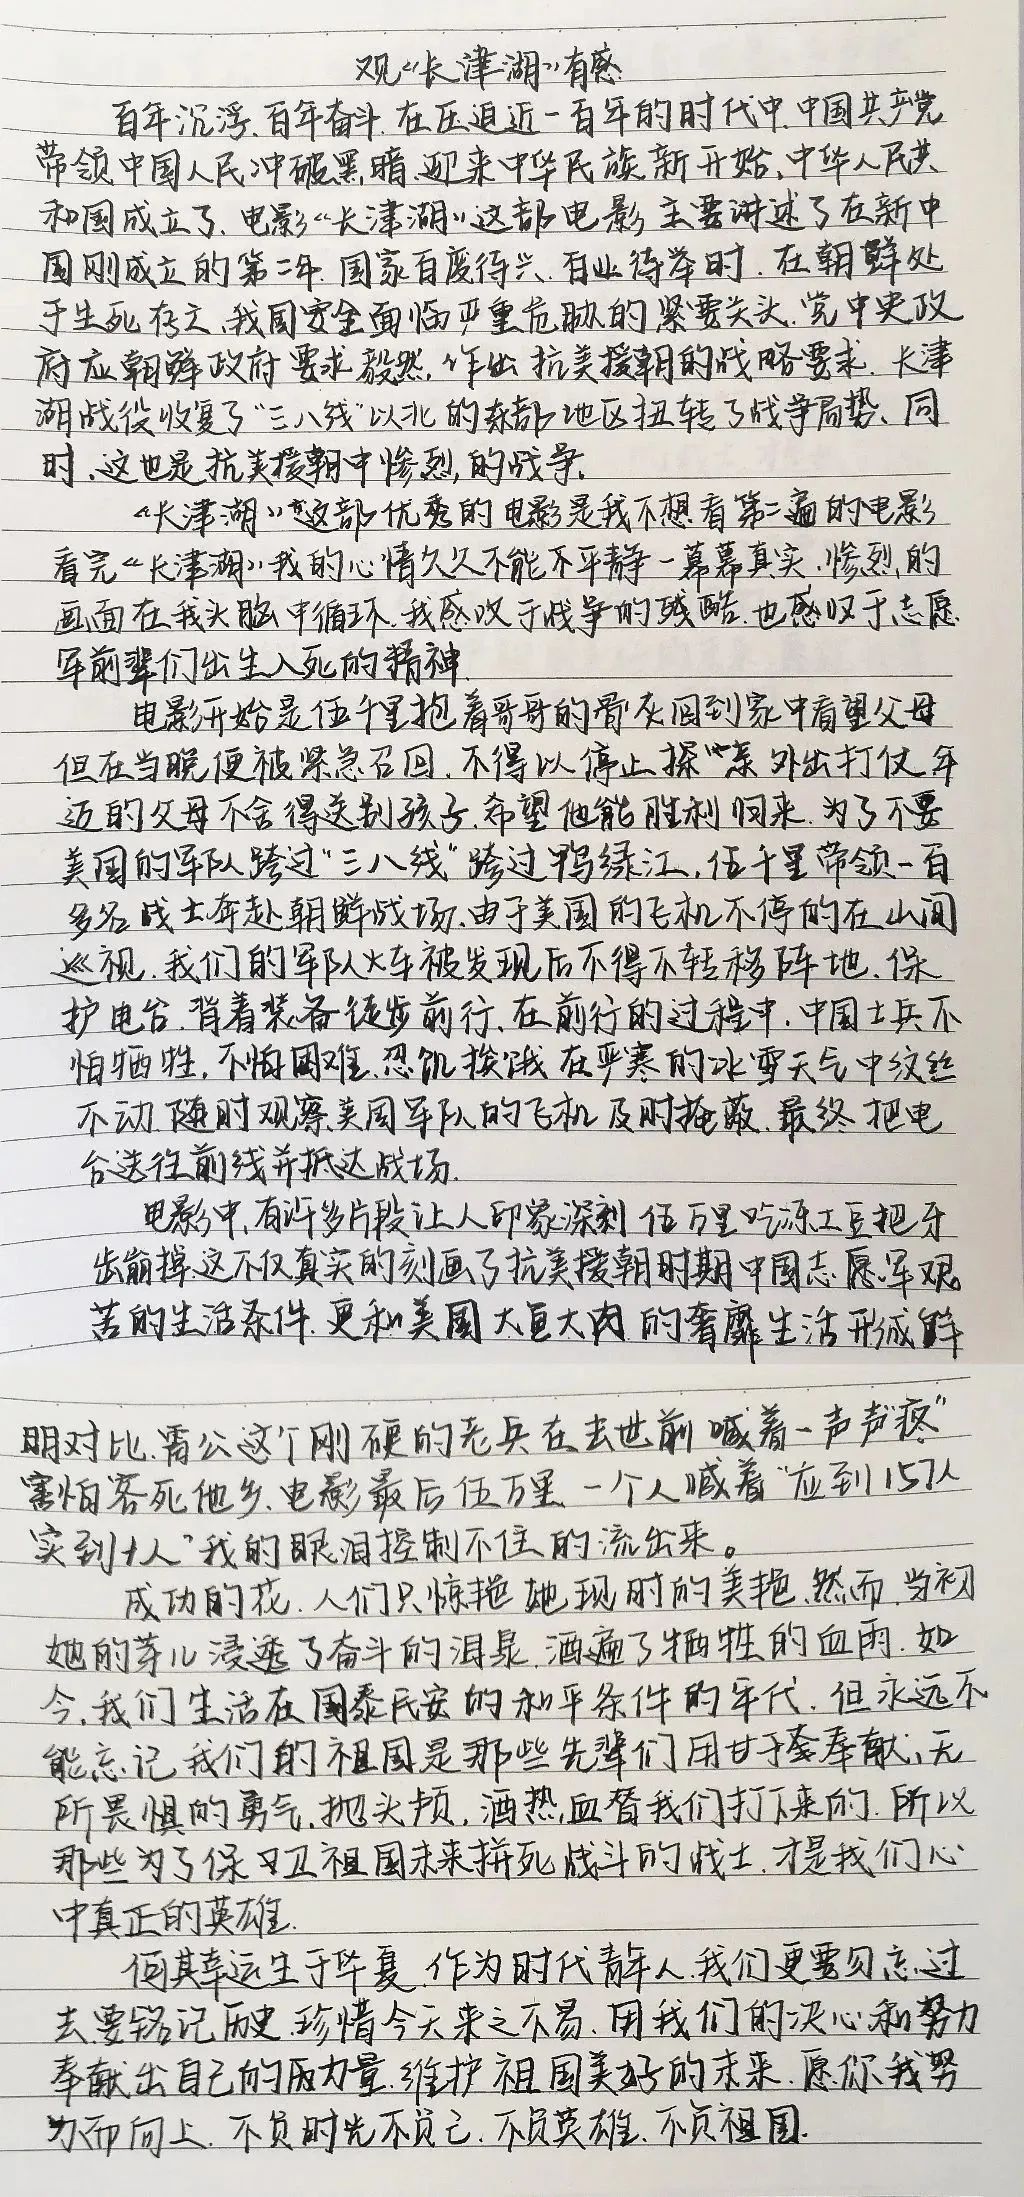 观《长津湖》有感
百年沉浮、百年奋斗.在压迫近一百年的时代中.中国共产党
带领中国人民冲破黑暗.迎来中华民族新开始、中华人民共
和国成立了、电影《长津湖》这部电影主要讲述了在新中
国刚成立的第二年.国家百废待兴.百业待举时.在朝鲜处
于生死存亡、我国安全面临严重危胁的紧要关头.党中央政
府应朝鲜政府要求毅然.作出抗美援朝的战略要求.长津
湖战役收复了"三八线"以北的东部地区扭转了战争局势、同
时、这也是抗美援朝中惨烈的战争.
《长津湖》这部优秀的电影是我不想看第二遍的电影
看完《长津湖》我的心情久久不能不平静一幕幕真实.惨烈的
画面在我头脑中循环.我感叹于战争的残酷.也感叹于志愿
军前辈们出生入死的精神.
电影开始是伍千里抱着哥哥的骨灰回到家中看望父母
但在当晚便被紧急召回.不得以停止探亲外出打仗.年
迈的父母不舍得送别孩子.希望他能胜利归来.为了不要
美国的军队跨过"三八线"跨过鸭绿江,伍千里带领一百
多名战士奔赴朝鲜战场.由于美国的飞机不停的在山间
巡视.我们的军队火车被发现后不得不转移阵地.保
护电台.背着装备徒步前行、在前行的过程中.中国士兵不
怕牺牲,不怕困难.忍饥挨饿在严寒的冰雪天气中纹丝
不动.随时观察美国军队的飞机及时掩蔽.最终把电
台送往前线并抵达战场.
电影中,有许多片段让人印象深刻 伍万里吃冻土豆把牙
齿崩掉这不仅真实的刻画了抗美援朝时期中国志愿军艰
苦的生活条件.更和美国大鱼大肉的奢靡生活形成鲜
明对比.雷公这个刚硬的老兵在去世前喊着一声声"疼"
害怕客死他乡.电影最后伍万里一个人喊着"应到157人
实到1人"我的眼泪控制不住的流出来。
成功的花.人们只惊艳她现时的美艳.然而.当初
她的芽儿浸透了奋斗的泪泉.洒遍了牺牲的血雨.如
今,我们生活在国泰民安的和平条件的年代.但永远不
能忘记我们的祖国是那些先辈们用甘于奉献、无
所畏惧的勇气.抛头颅,洒热血替我们打下来的.所以
那些为了保卫祖国未来拼死战斗的战士.才是我们心
中真正的英雄.
何其幸运生于华夏.作为时代青年人.我们更要勿忘过
去要铭记历史.珍惜今天来之不易.用我们的决心和努力
奉献出自己的力量.维护祖国美好的未来.愿你我努
力而向上.不负时光不负己.不负英雄.不负祖国.